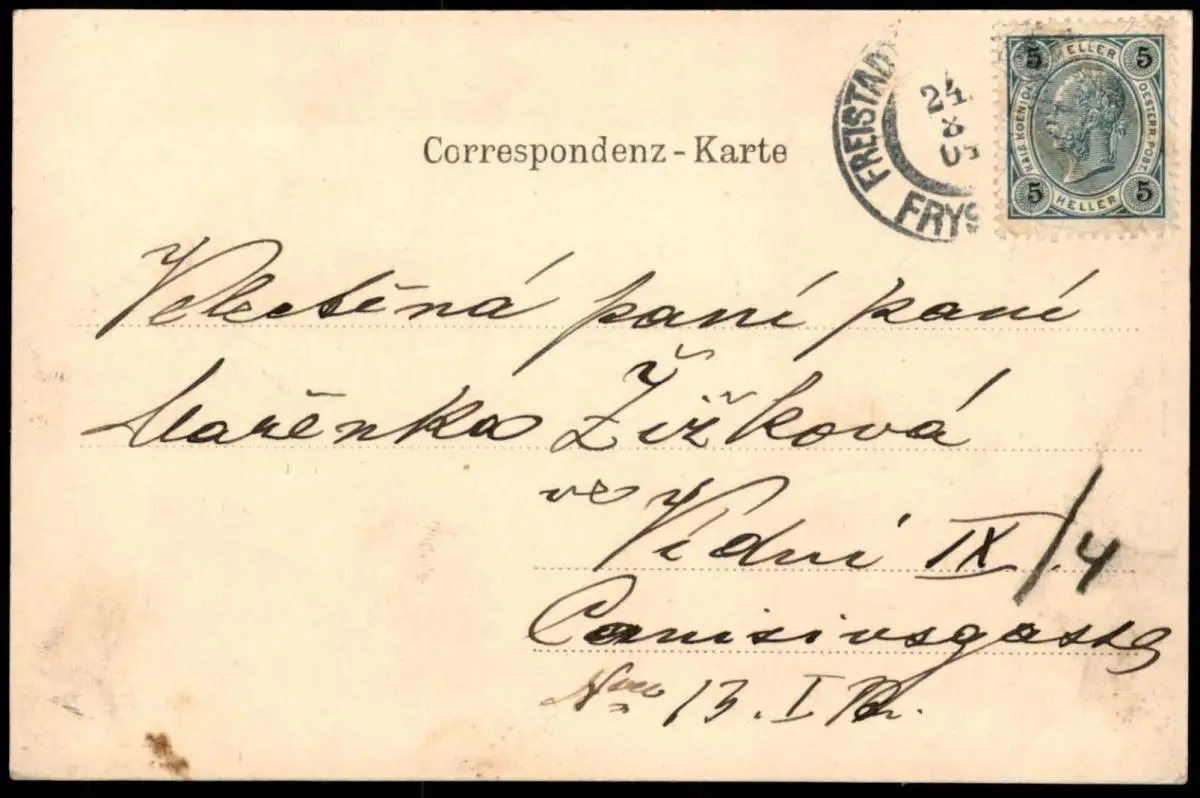 Correspondenz-Karte
FREISTADT
FRYS
24.
8
5 HELLER 5
KAIS. KOENIGL. OESTERR. POST.
5 HELLER 5
Velectěná paní paní
Mařenka Žižková
ve
Vídni IX/4
Canisiusgasse
Nro 13. I